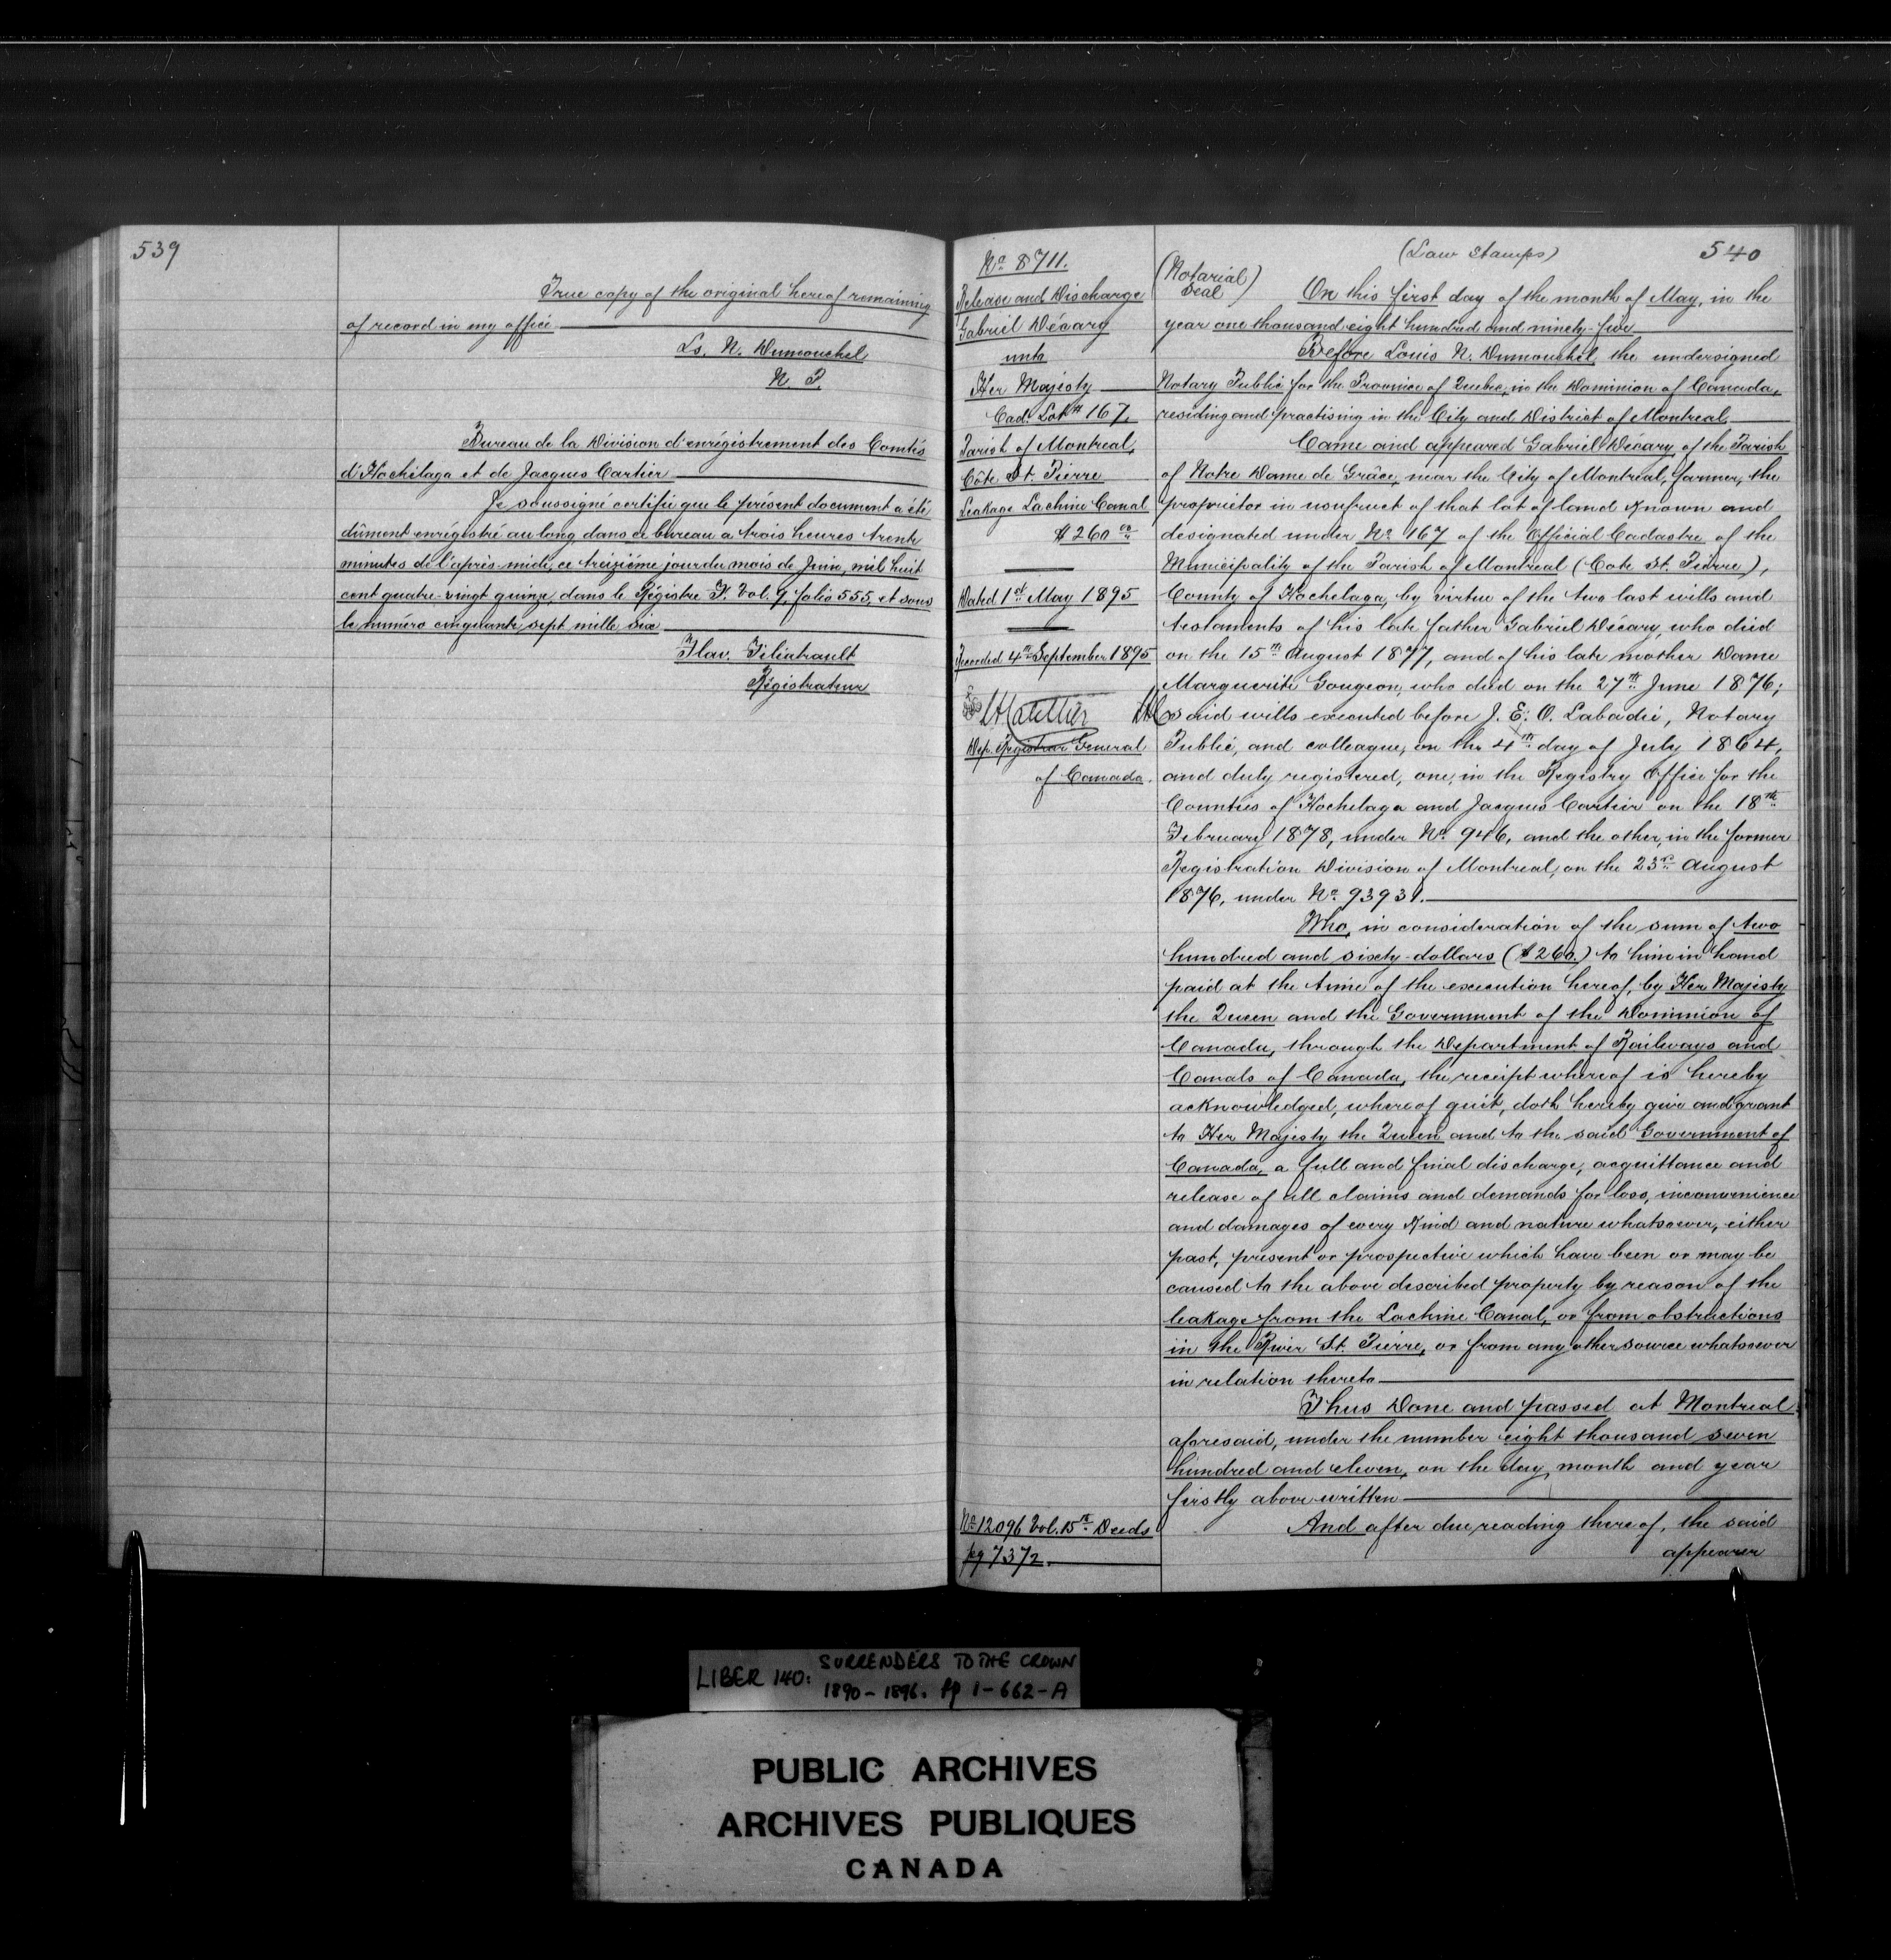 539
True copy of the original hereof remaining
of record in my office
Ls. N. Dumouchel
N. P.
Bureau de la Division d'enrégistrement des Comtés
d'Hochelaga et de Jacques Cartier
Je soussigné certifie que le présent document a été
dûment enrégistré au long dans ce bureau a trois heures trente
minutes de l'après-midi, ce treizième jour du mois de Juin, mil huit
cent quatre-vingt quinze, dans le Régistre H. Vol. 9, folio 555, et sous
le numéro cinquante sept mille six
Flav. Filiatrault
Régistrateur
No. 8711.
Release and Discharge
Gabriel Décary
unto
Her Majesty
Cad. Lot # 167,
Parish of Montreal,
Côte St. Pierre
Leakage Lachine Canal
$260 00
Dated 1st May 1895
Recorded 4th September 1895
Dep. Registrar General
of Canada.
No 12096 Vol. 15th Deeds
pg 7372.
(Law Stamps)
540
(Notarial
Seal)
On this first day of the month of May, in the
year one thousand eight hundred and ninety-five
Before Louis N. Dumouchel, the undersigned
Notary Public for the Province of Quebec, in the Dominion of Canada,
residing and practising in the City and District of Montreal,
Came and appeared Gabriel Décary, of the Parish
of Notre Dame de Grâce, near the City of Montreal, farmer, the
proprietor in usufruct of that lot of land Known and
designated under No. 167 of the Official Cadastre of the
Municipality of the Parish of Montreal (Cote St. Pierre),
County of Hochelaga, by virtue of the two last wills and
testaments of his late father Gabriel Décary, who died
on the 15th August 1877, and of his late mother Dame
Marguerite Gougeon, who died on the 27th June 1876;
said wills executed before J. E. O. Labadie, Notary
Public, and colleague, on the 4th day of July 1864,
and duly registered, one, in the Registry Office for the
Counties of Hochelaga and Jacques Cartier on the 18th
February 1878, under No. 946, and the other, in the former
Registration Division of Montreal, on the 23rd August
1876, under No. 93931.
Who, in consideration of the sum of two
hundred and sixty-dollars ($260.) to him in hand
paid at the time of the execution hereof, by Her Majesty
the Queen and the Government of the Dominion of
Canada, through the Department of Railways and
Canals of Canada, the receipt whereof is hereby
acknowledged, whereof quit, doth hereby give and grant
to Her Majesty the Queen and to the said Government of
Canada, a full and final discharge, acquittance and
release of all claims and demands for loss, inconvenience
and damages of every Kind and nature whatsoever, either
past, present or prospective which have been or may be
caused to the above described property by reason of the
leakage from the Lachine Canal, or from obstructions
in the River St. Pierre, or from any other source whatsoever
in relation thereto
Thus Done and passed at Montreal
aforesaid, under the number eight thousand seven
hundred and eleven, on the day, month and year
firstly above written
And after due reading thereof, the said
appearer
LIBER 140: SURRENDERS TO THE CROWN
1890-1896. pp 1-662-A
PUBLIC ARCHIVES
ARCHIVES PUBLIQUES
CANADA